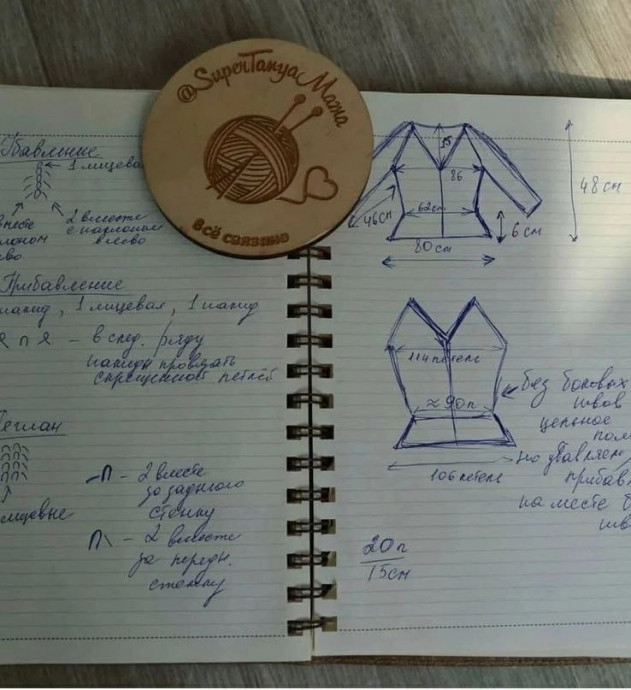 @SuperTanyaMama
всё связано
Убавление
1 лицевая
вместе
2 вместе
с наклоном
влево
Прибавление
накид, 1 лицевая, 1 накид
- в след. ряду
накиды провязать
скрещенной петлёй
Реглан
лицевые
- 2 вместе
за заднюю
стенку
- 2 вместе
за передн.
стенку
15
86
46см
62см
6 см
80 см
48 см
114 петель
≈90п
106 петель
без боковых
швов
цельное
но убавляем
прибавл
на месте б
шв
20п
15см